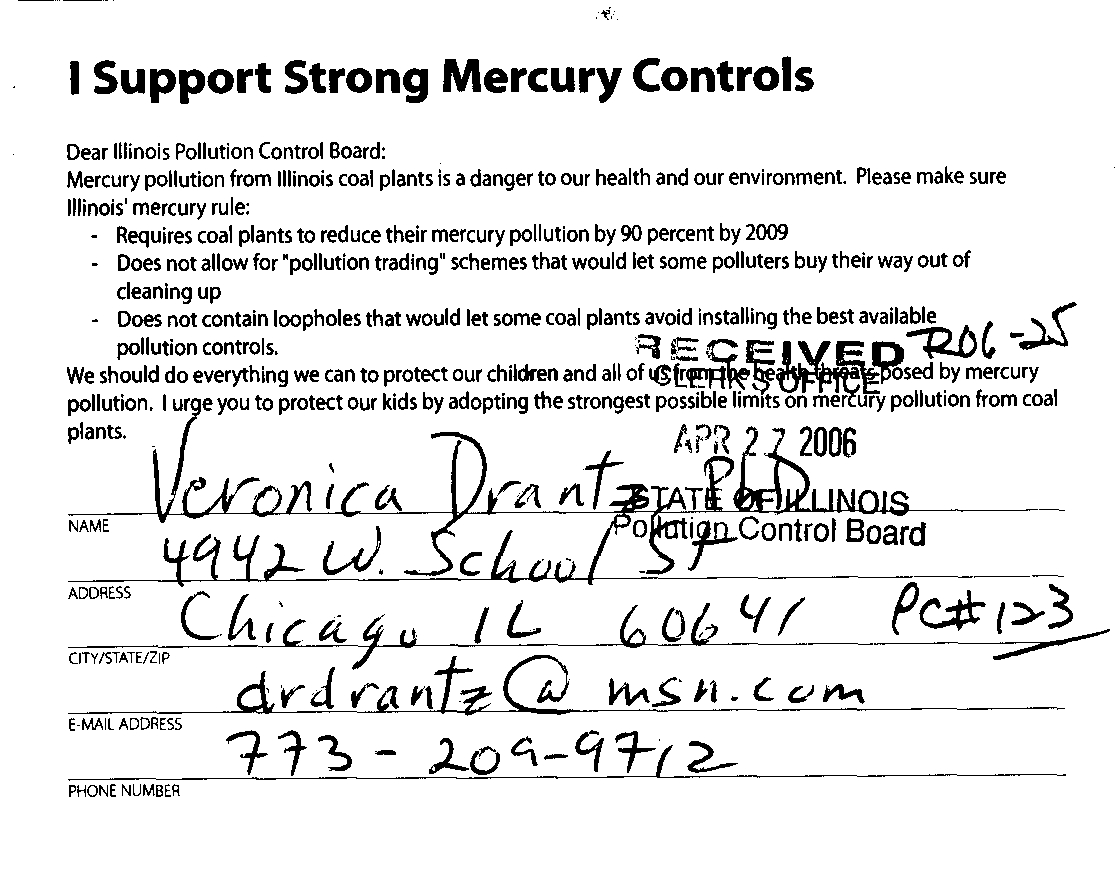 I Support Strong Mercury Controls
Dear Illinois Pollution Control Board:
Mercury pollution from Illinois coal plants is a danger to our health and our environment. Please make sure
Illinois' mercury rule:
- Requires coal plants to reduce their mercury pollution by 90 percent by 2009
- Does not allow for "pollution trading" schemes that would let some polluters buy their way out of
cleaning up
- Does not contain loopholes that would let some coal plants avoid installing the best available
pollution controls.
RECEIVED R06-25
CLERK'S OFFICE
We should do everything we can to protect our children and all of us from the health threats posed by mercury
pollution. I urge you to protect our kids by adopting the strongest possible limits on mercury pollution from coal
plants.
APR 27 2006
Veronica Drantz PhD
STATE OF ILLINOIS
NAME
Pollution Control Board
4942 W. School St
ADDRESS
Chicago IL 60641 PC#123
CITY/STATE/ZIP
drdrantz@msn.com
E-MAIL ADDRESS
773-209-9712
PHONE NUMBER